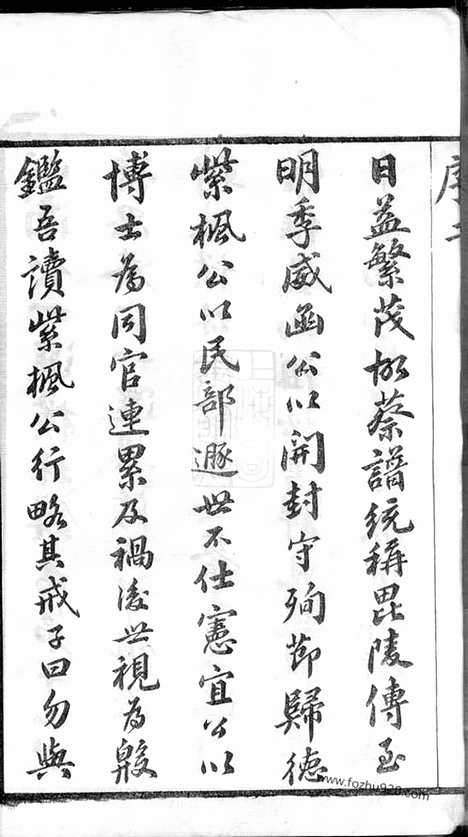 序二
日益繁茂故蔡譜統稱毘陵傳至
明季威函公以開封守殉節歸德
紫楓公以民部遯世不仕憲宜公以
博士為同官連累及禍後世視為殷
鑑吾讀紫楓公行略其戒子曰勿與
www.fozhu920.com